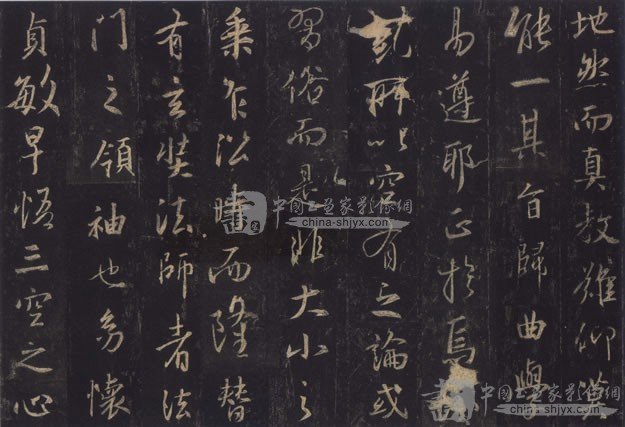 地然而真教難仰莫
能一其旨歸曲學
易遵耶正於焉紛
糺所以空有之論或
習俗而是非大小之
乘乍沿時而隆替
有玄奘法師者法
門之領袖也幼懷
貞敏早悟三空之心
中国书画家影像網
china-shjyx.com
中国书画家影像網
china-shjyx.com